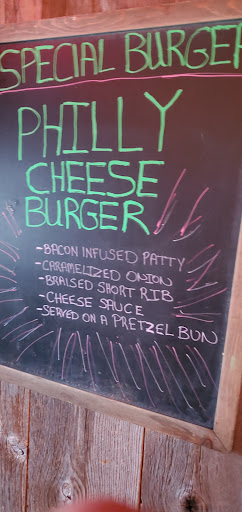 SPECIAL BURGER
PHILLY
CHEESE
BURGER
-BACON INFUSED PATTY
-CARAMELIZED ONION
-BRAISED SHORT RIB
-CHEESE SAUCE
-SERVED ON A PRETZEL BUN